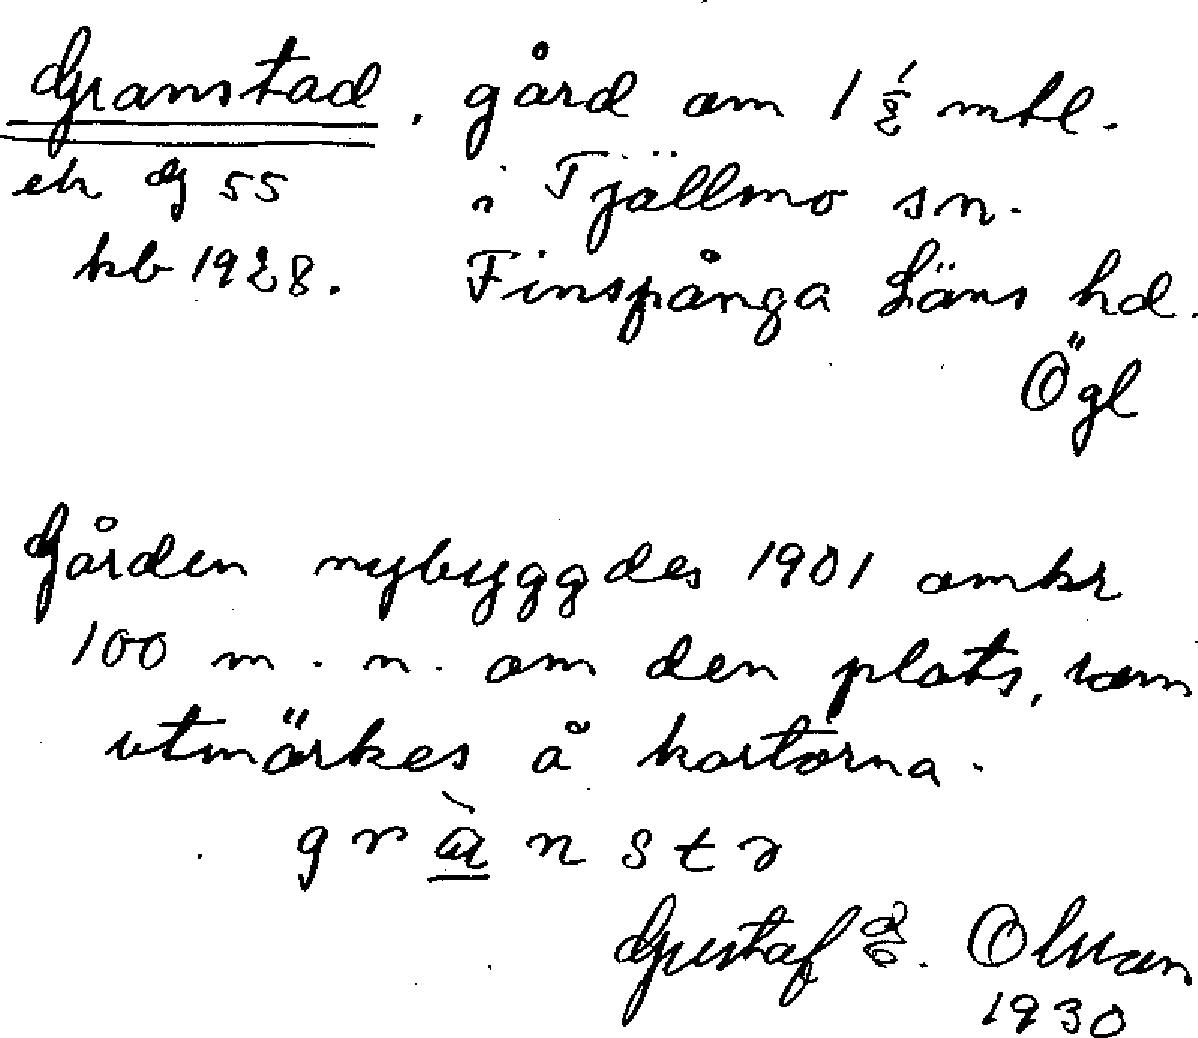 Granstad, gård om 1 1/2 mtl.
ek G 55 i Tjällmo sn.
kb 1928. Finspånga Läns hd.
Ögl
Gården nybyggdes 1901 omkr
100 m. n. om den plats, som
utmärkes å kartorna.
g r à n s t
Gustaf E. Olsson
1930